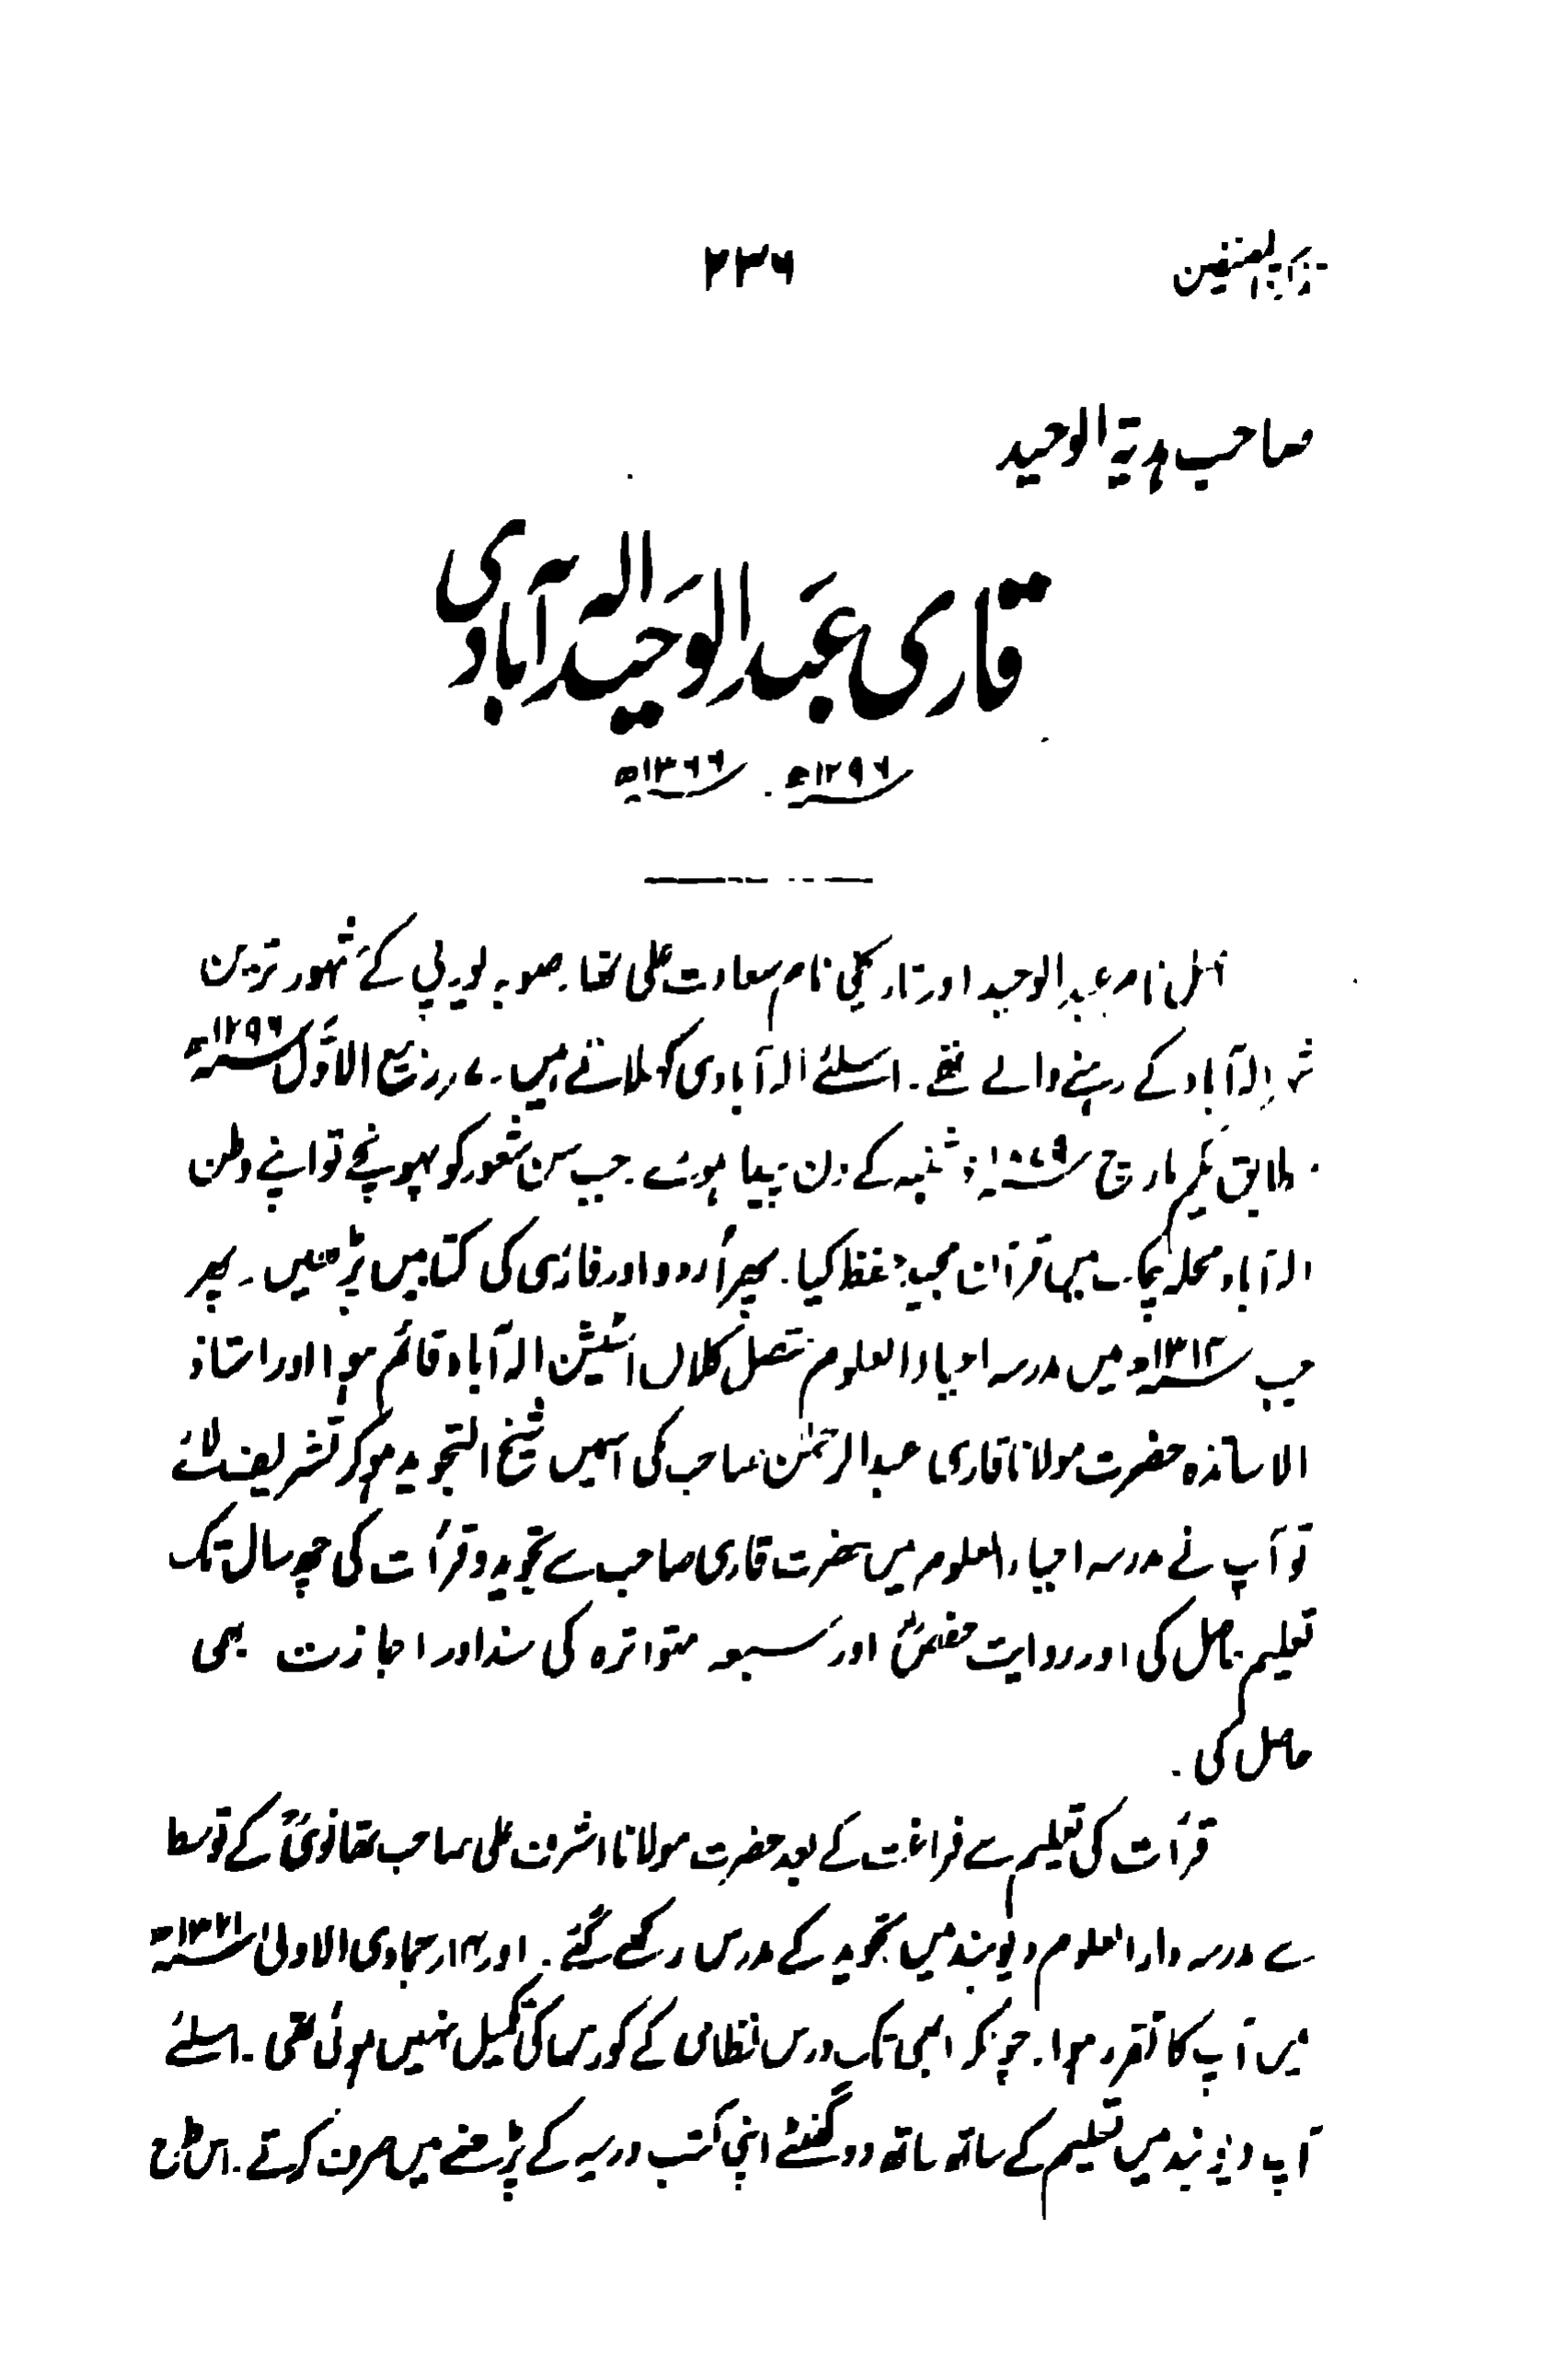 تذکرۃ المصنفین ۲۳۶
صاحب ہدیۃ الوحید
قاری عبد الوحید الہ آبادی
۱۲۹۶ھ ۔ ۱۳۶۶ھ
اصل نام عبد الوحید اور تاریخی نام سعادت علی تھا۔ صوبہ یوپی کے مشہور ترین
شہر الہ آباد کے رہنے والے تھے۔ اسلئے الہ آبادی کہلاتے ہیں۔ ۷؍ ربیع الاول ۱۲۹۶ھ
مطابق یکم مارچ ۱۸۷۹ء شنبہ کے دن پیدا ہوئے۔ جب سن شعور کو پہونچے تو اپنے وطن
الہ آباد محلہ چک میں قرآن مجید حفظ کیا۔ پھر اُردو اور فارسی کی کتابیں پڑھیں۔ پھر
جب ۱۳۱۲ھ میں مدرسہ احیاء العلوم متصل کلاں اسٹیشن الہ آباد قائم ہوا اور استاذ
الاساتذہ حضرت مولانا قاری عبد الرحمٰن صاحب مکی اسمیں شیخ التجوید ہوکر تشریف لائے
تو آپ نے مدرسہ احیاء العلوم میں حضرت قاری صاحب سے تجوید و قرأت کی چھ سال تک
تعلیم حاصل کی اور روایت حفصؒ اور سبعہ متواترہ کی سند اور اجازت بھی
حاصل کی۔
قرأت کی تعلیم سے فراغت کے بعد حضرت مولانا اشرف علی صاحب تھانویؒ کے توسط
سے مدرسہ دار العلوم دیوبند میں تجوید کے مدرس رکھے گئے۔ اور ۱۴؍ جمادی الاولیٰ ۱۳۲۱ھ
میں آپ کا تقرر ہوا۔ چونکہ ابھی تک درس نظامی کے کورس کی تکمیل نہیں ہوئی تھی۔ اسلئے
آپ دیوبند میں تعلیم کے ساتھ ساتھ دو گھنٹے اپنی کتب درسیہ کے پڑھنے میں صرف کرتے۔ اس طرح